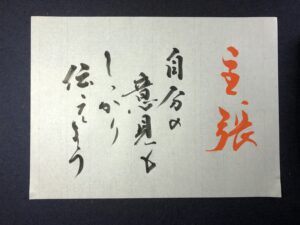 主張
自分の
意見も
しっかり
伝えよう